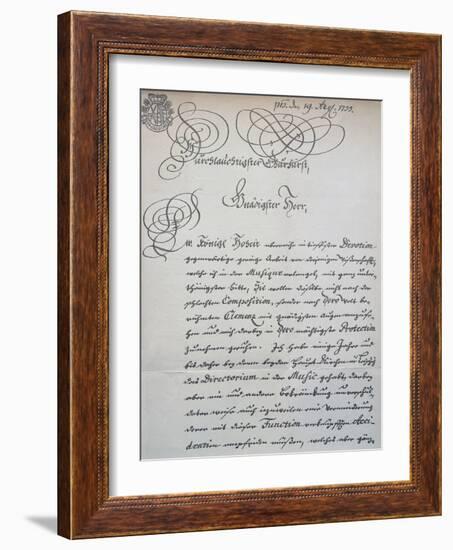 präs. den 19. Aug. 1733.
Durchlauchtigster Churfürst,
Gnädigster Herr,
Ew. Königl. Hoheit überreiche in tieffster Devotion
gegenwärtige geringe Arbeit von derjenigen Wißenschafft,
welche ich in der Musique erlanget, mit ganz unter-
thänigster Bitte, Sie wollen dieselbe nicht nach der
schlechten Composition, sondern nach Dero Welt be-
rühmten Clemenz mit gnädigsten Augen anzuse-
hen und mich darbey in Dero mächtigste Protection
zunehmen geruhen. Ich habe einige Jahre und
bis daher bey denen beyden Haupt Kirchen in Leipzig
das Directorium in der Music gehabt, darbey
aber ein und andere Bekränckung unverschul-
deter weise auch iezuweilen eine Verminderung
derer mit dieser Function verknüpfften Acci-
dentien empfinden müßen, welches aber gänz-